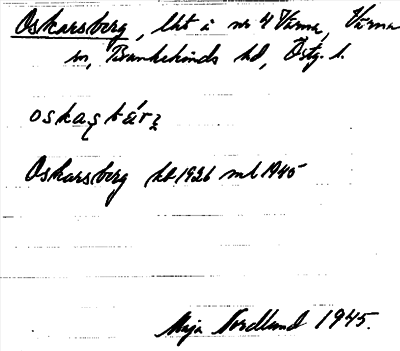 Oskarsberg, lht å nr 4 Värna, Värna
sn, Bankekinds hd, Östg. l.
oskaʂbárʝ
Oskarsberg kb 1926 ml 1945
Maja Nordlund 1945.